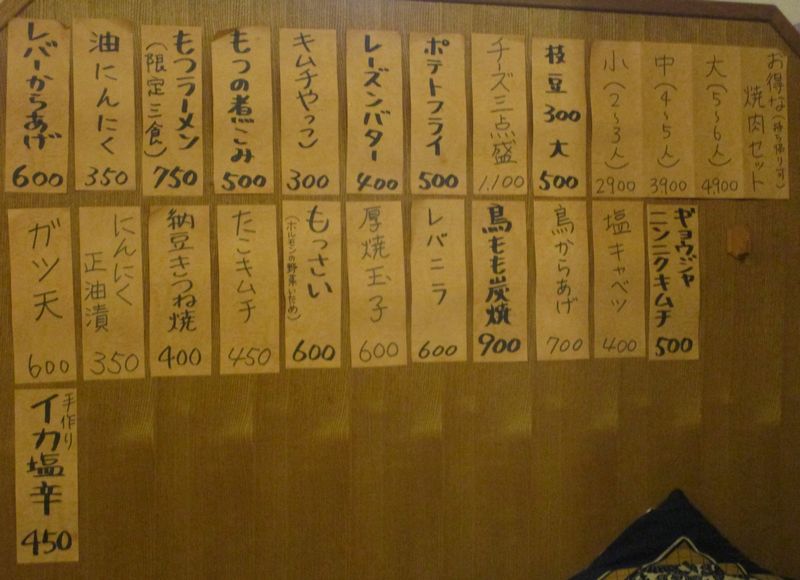 お得な(持ち帰り可)
焼肉セット
大(5~6人)
4900
中(4~5人)
3900
小(2~3人)
2900
枝豆300大
500
チーズ三点盛
1.100
ポテトフライ
500
レーズンバター
400
キムチやっこ
300
もつの煮こみ
500
もつラーメン
(限定三食)
750
油にんにく
350
レバーからあげ
600
ギョウジャ
ニンニクキムチ
500
塩キャベツ
400
鳥からあげ
700
鳥もも炭焼
900
レバニラ
600
厚焼玉子
600
もっさい
(ホルモンの野菜いため)
600
たこキムチ
450
納豆きつね焼
400
にんにく
正油漬
350
ガツ天
600
手作り
イカ塩辛
450